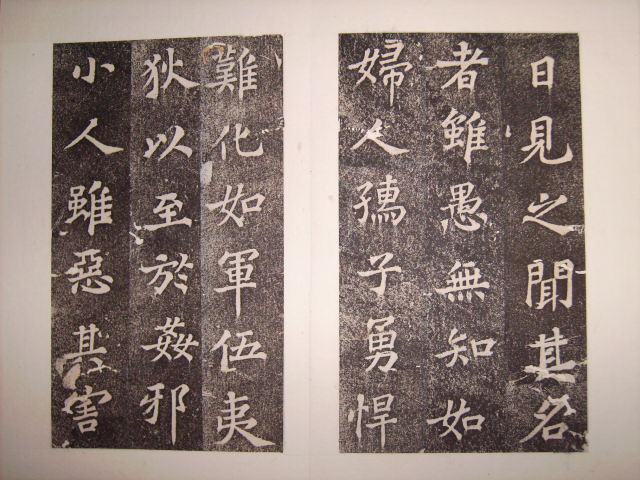 日見之聞其名
者雖愚無知如
婦人孺子勇悍
難化如軍伍夷
狄以至於姦邪
小人雖惡其害